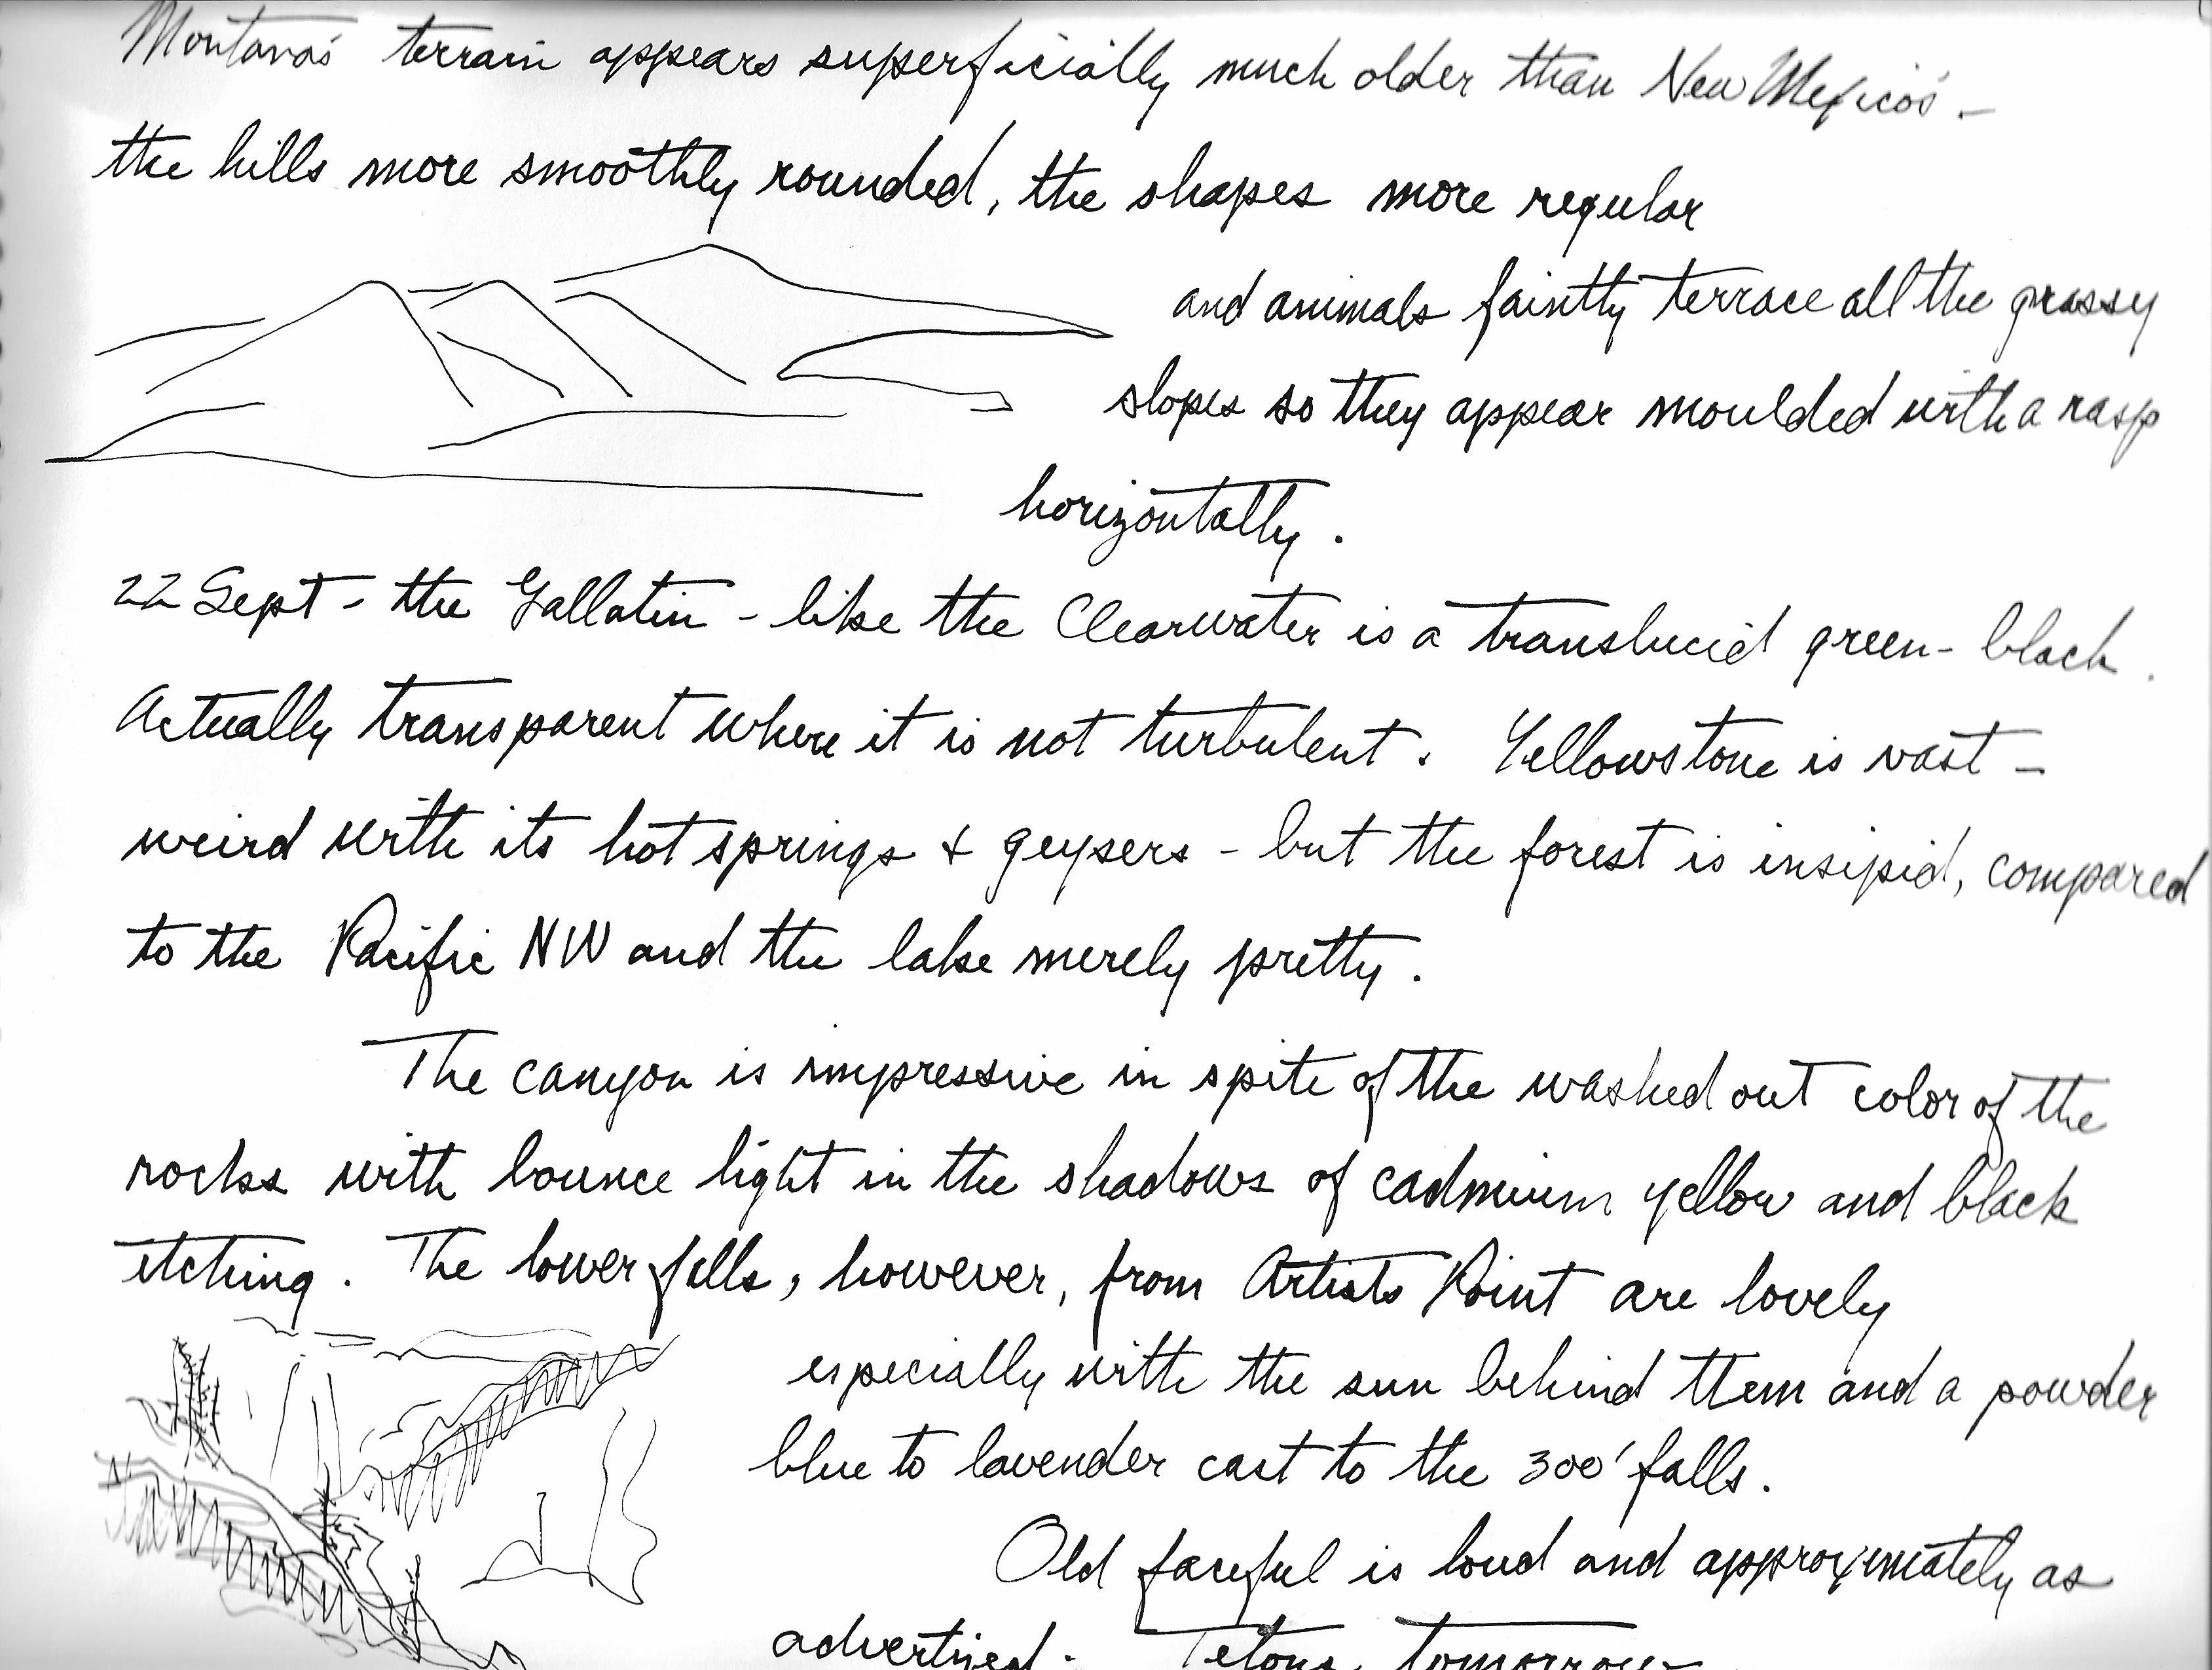 Montana's terrain appears superficially much older than New Mexico's -
the hills more smoothly rounded, the shapes more regular
and animals faintly terrace all the grassy
slopes so they appear moulded with a rasp
horizontally.
22 Sept - the Gallatin - like the Clearwater is a translucid green-black.
Actually transparent where it is not turbulent. Yellowstone is vast -
weird with its hot springs + geysers - but the forest is insipid, compared
to the Pacific NW and the lake merely pretty.
The canyon is impressive in spite of the washed out color of the
rocks with bounce light in the shadows of cadmium yellow and black
itching. The lower falls, however, from Artists Point are lovely
especially with the sun behind them and a powder
blue to lavender cast to the 300' falls.
Old faceful is loud and approximately as
advertised. Tetons tomorrow